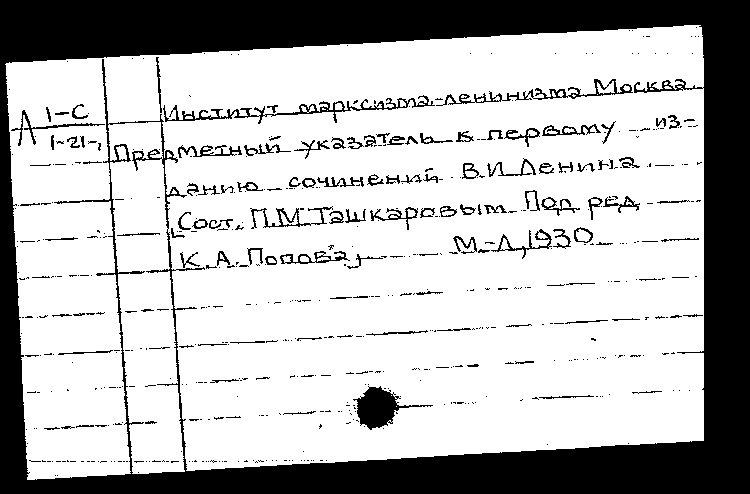 Л 1-С
1-21-1
Институт марксизма-ленинизма Москва.
Предметный указатель к первому из-
данию сочинений В.И Ленина.
Сост. П.М Ташкаровым Под ред
К.А. Попова, М.-Л, 1930